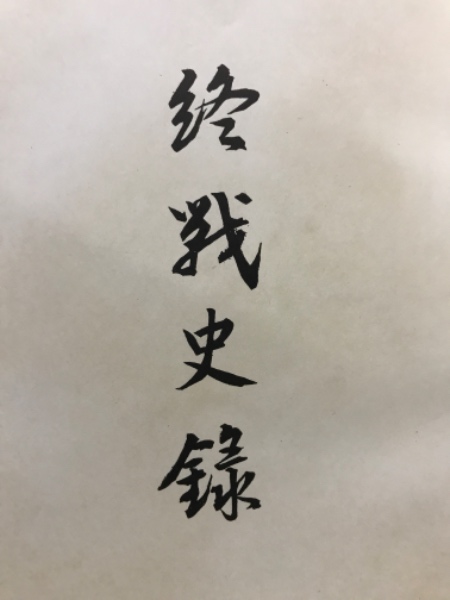 終戦史録